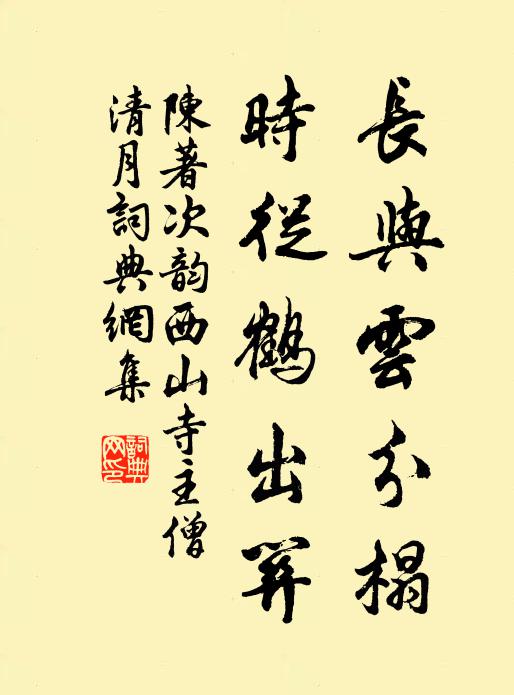 長與雲分榻
時從鶴出關
陳著次韵西山寺主僧
清月詞典網集
詞典网印